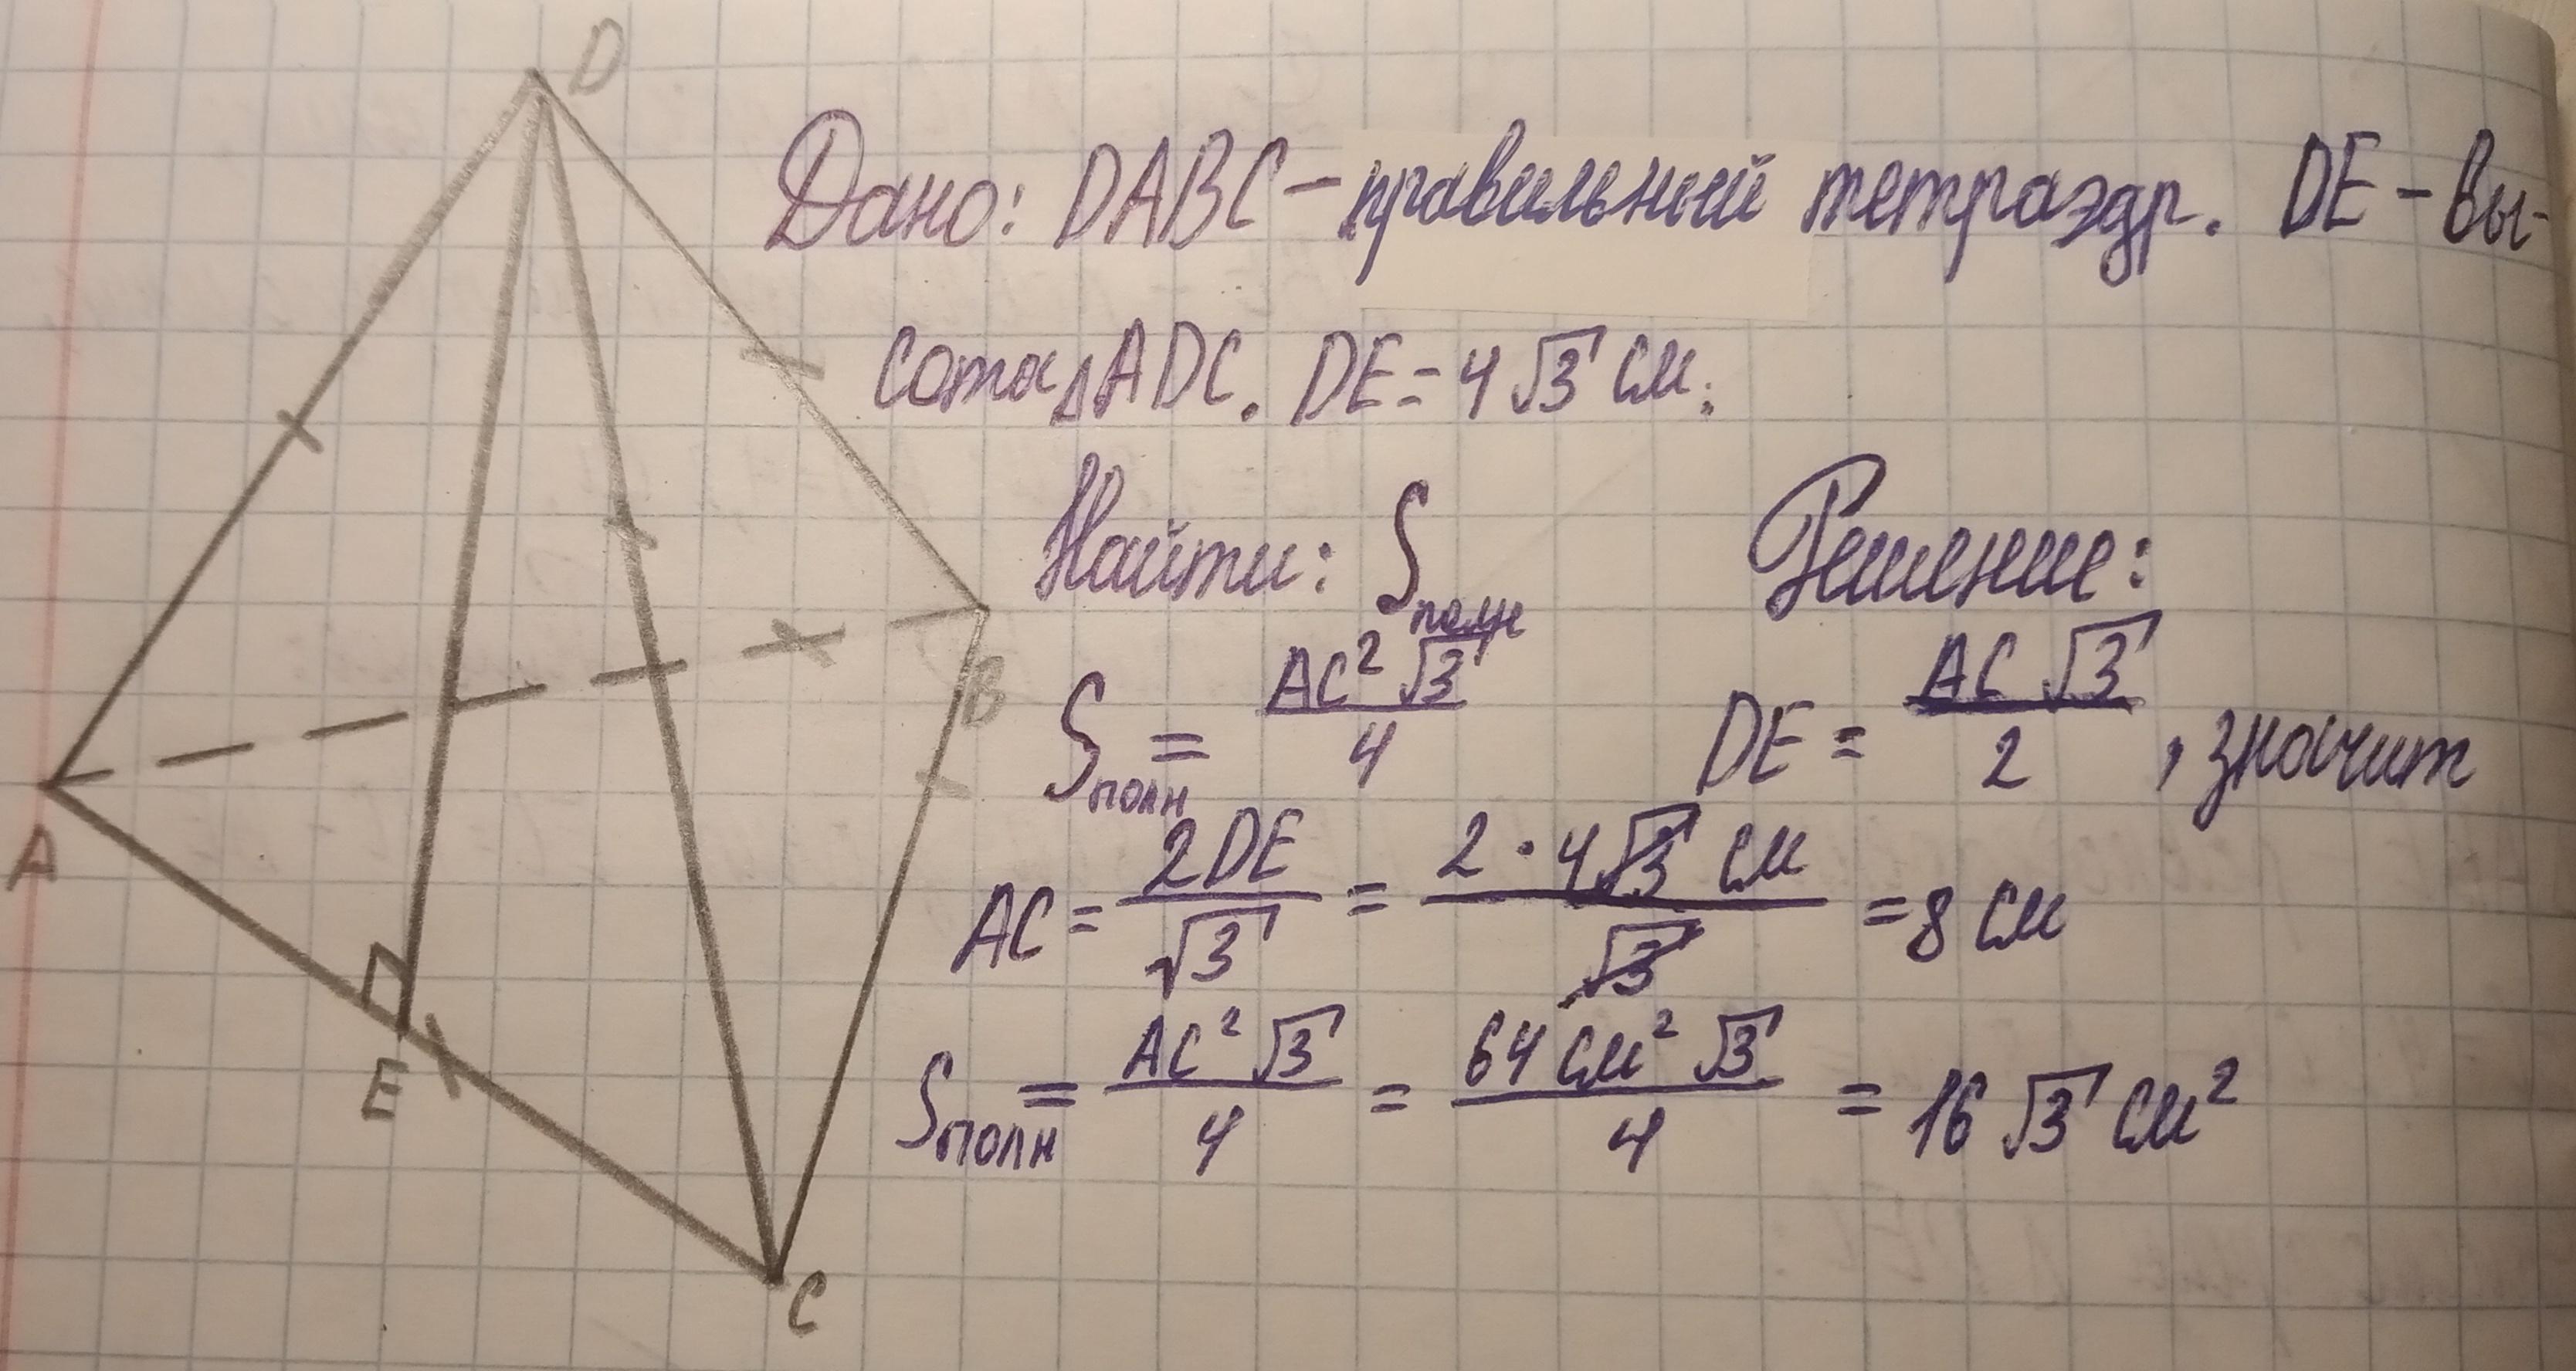 D
Дано: DABC – правильный тетраэдр. DE – вы-
сота ΔADC. DE = 4√3 см.
Найти: Sполн
Решение:
Sполн = AC²√3 / 4
DE = AC√3 / 2, значит
B
A
AC = 2DE / √3 = 2·4√3 см / √3 = 8 см
E
Sполн = AC²√3 / 4 = 64 см²√3 / 4 = 16√3 см²
C